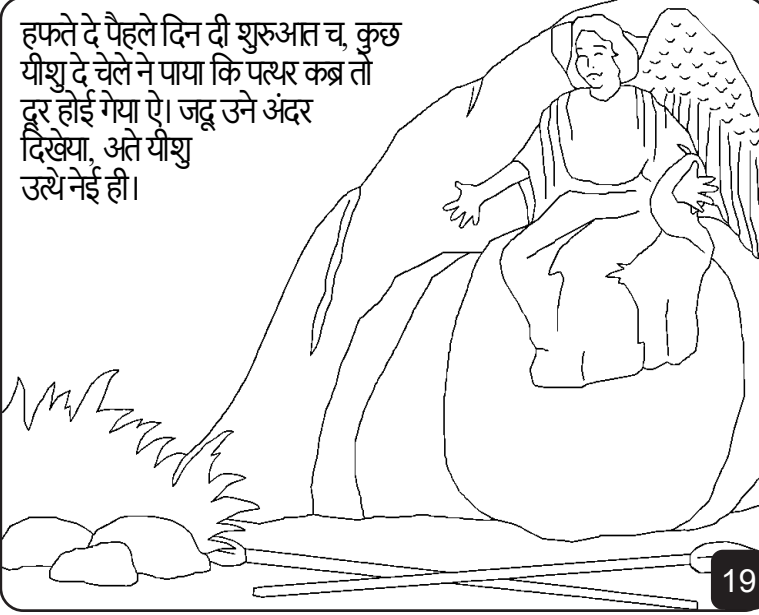 हफते दे पैहले दिन दी शुरुआत च, कुछ
यीशु दे चेले ने पाया कि पत्थर कब्र तो
दूर होई गेया ऐ। जदू उने अंदर
दिखेया, अते यीशु
उत्थे नेई ही।
19